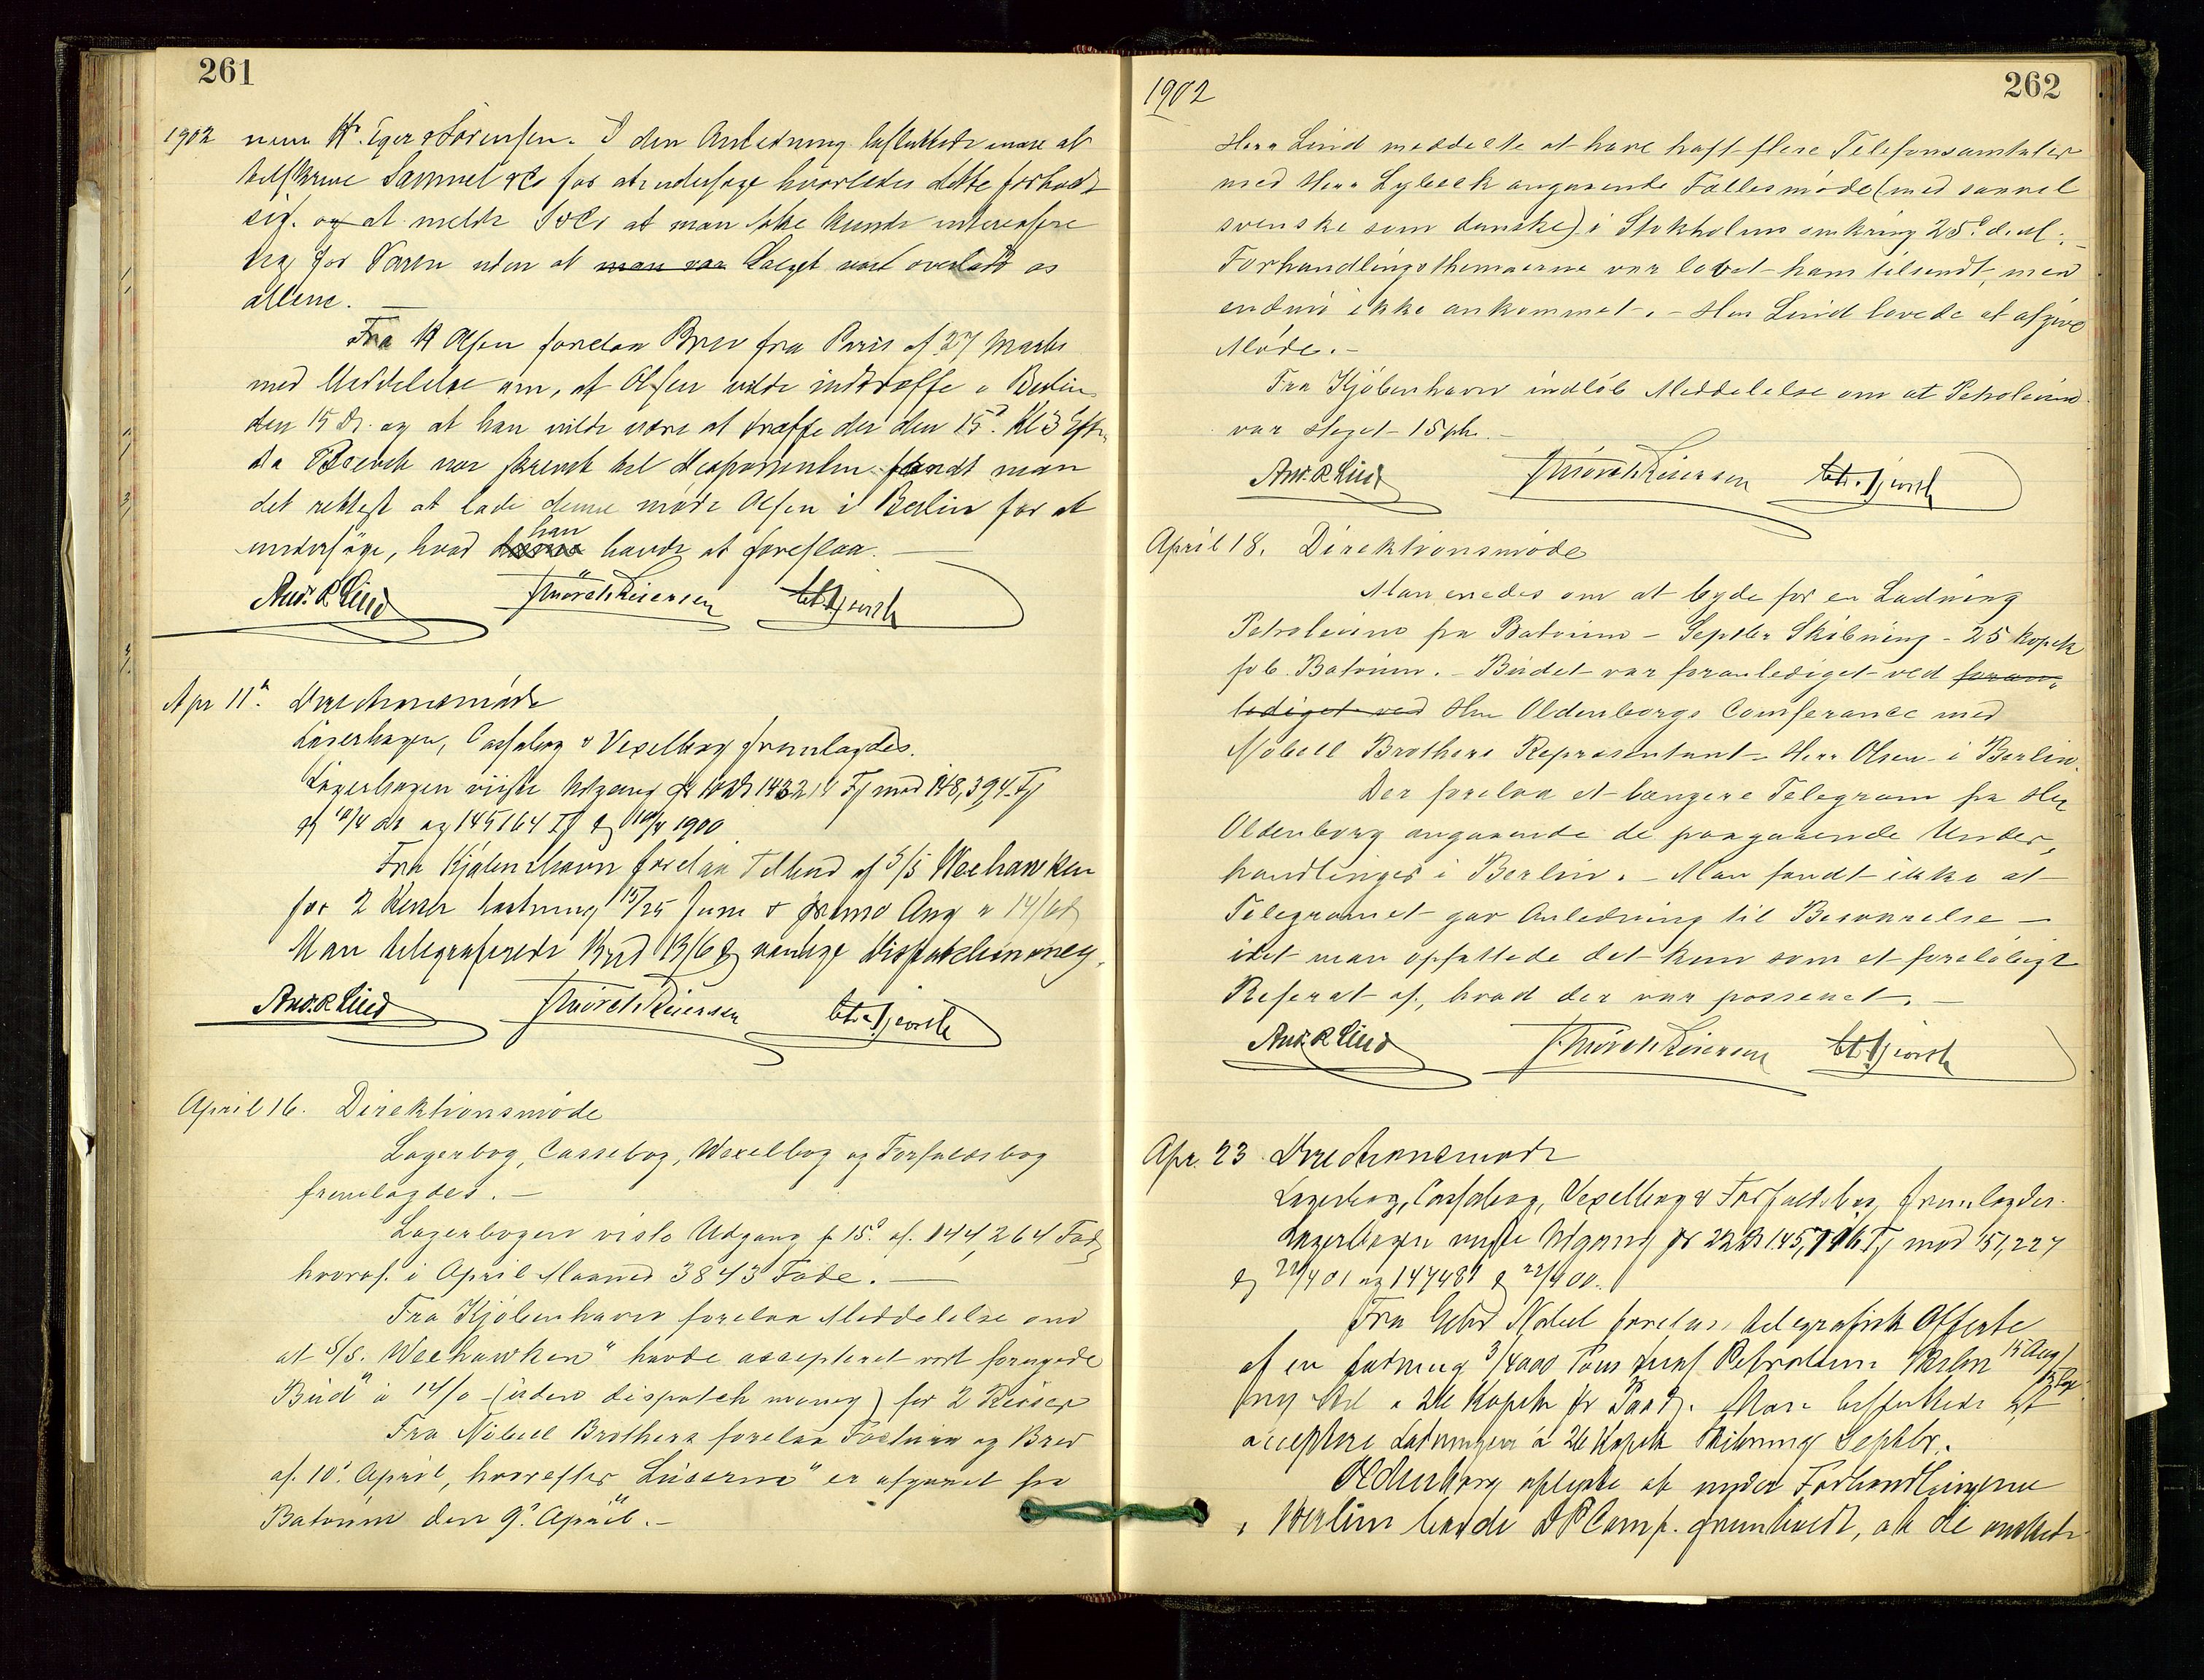 261
1902 nem Hr. Eger & Sörensen. I den Anledning besluttede man at
tilskrive Samuel & Co for at undersøge hvorledes dette forholdt
sig. og at melde S & Co at man ikke kunde interessere
sig for Varen uden at man var Salget vart overladt os
allene. —
Fra H Olsen forelaa Brev fra Paris af 27 Marts
med Meddelelse om, at Olsen vilde indtræffe i Berlin
den 15 ds. og at han vilde være at træffe der den 15d. Kl 3 Eft.
da var skrevet til man
det rettest at lade denne møde Olsen i Berlin for at
undersöge, hvad denne han havde at foreslaa. —
Andr. R Lind J Mörch Reiersen Chr. Hjorth
Apr 11te. Directionsmöde
Lagerbogen, Cassabog & Vexelbog fremlagdes.
Lagerbogen viiste Udgang pr 10 ds 143214 Fj mod 148,394 Fj
pr 10/4 01 og 145164 Fj pr 10/4 1900
Fra Kjøbenhavn forelaa Tilbud af S/S Weehawken
for 2 Reiser lastning 15/25 Juni & primo Aug a 14/
Man telegraferede Bud 13/6 & vanlige dispatchmoney.
Andr. R Lind J Mörch Reiersen Chr. Hjorth
April 16. Direktionsmöde
Lagerbog, Cassebog, Wexelbog og Forfaldsbog
fremlagdes. —
Lagerbogen viste Udgang p 15d. af. 144,264 Fade
hvoraf. i April Maaned 3843 Fade. —
Fra Kjöbenhavn forelaa Meddelelse om
at S/S. Weehawken" havde accepteret vort forøgede
Bud" a 14/0 — (uden dispatch money) for 2 Reiser
Fra Nobell Brothers forelaa Factura og Brev
af. 10d. April, hvorefter Lucerne" er afgaaet fra
Batoum den 9d. April. —
1902
262
Herr Lind meddelte at have haft flere Telefonsamtaler
med Herr Lybeck angaaende Fællesmöde (med saavel
svenske som danske) i Stokholm omkring 25d. d. M. —
Forhandlingsthemaerne var lovet ham tilsendt, men
endnu ikke ankommet. — Herr Lind lovede at afgive
Möde. —
Fra Kjöbenhavn indløb Meddelelse om at Petroleum
var steget 15 pk. —
Andr. R Lind J Mörch Reiersen Chr. Hjorth
April 18. Direktionsmöde
Man enedes om at byde for en Ladning
Petroleum fra Batoum — Septbr Skibning — 25 kopek
fob. Batoum. — Budet var foranlediget ved foran-
lediget ved Herr Oldenborgs Conferance med
Nobell Brothers Repræsentant — Herr Olsen i Berlin.
Der forelaa et længere Telegram fra Herr
Oldenborg angaaende de paagaaende Under-
handlinger i Berlin. — Man fandt ikke at
Telegramet gav Anledning til Besvarelse —
idet man opfattede det kun som et foreløbigt
Referat af, hvad der var passeret. —
Andr. R Lind J Mörch Reiersen Chr. Hjorth
Apr. 23 Directionsmöde
Lagerbog, Cassabog, Vexelbog & Forfaldsbog fremlagdes.
Lagerbogen viiste Udgang pr 22 ds 145,716 Fj mod 151,227
pr 22/4 01 og 147487 pr 22/4 00.
Fra Gebr Nobel forelaa telegrafisk Offerte
af en Ladning 3/4000 Tons Petroleum 15 Aug/
a 26 Kopek pr Pud. Man besluttede at
acceptere Ladningen a 26 Kopek Skibning Septbr.
Oldenborg oplyste at under Forhandlingerne
i Berlin havde D P Comp. fremholdt, at de ønskede